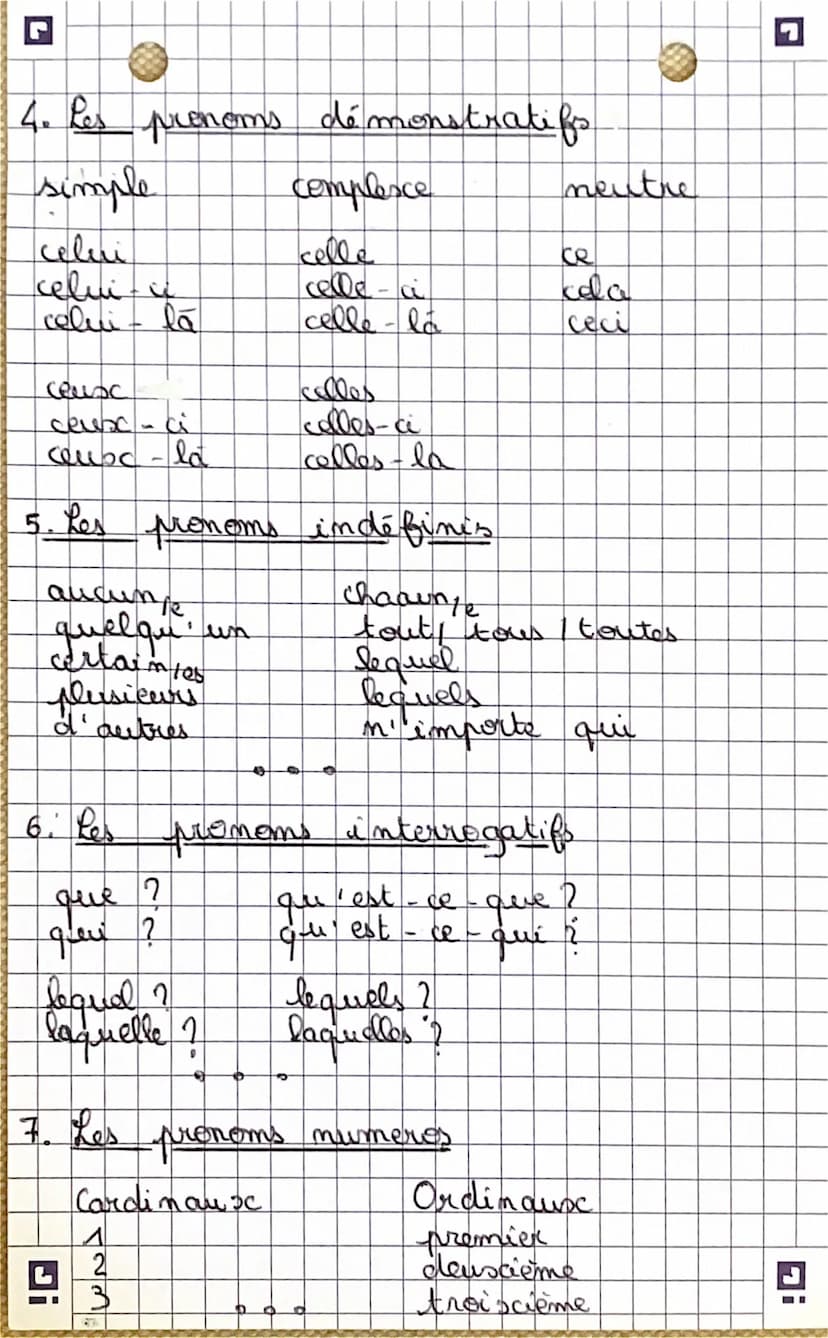 4. Les pronoms démonstratifs
simple complexe neutre
celui celle ce
celui-ci celle-ci cela
celui-là celle-là ceci
ceux celles
ceux-ci celles-ci
ceux-là celles-la
5. Les pronoms indéfinis
aucun/e chacun/e
quelqu'un tout/ tous / toutes
certain/es lequel
plusieurs lequels
d'autres n'importe qui
...
6. Les pronoms interrogatifs
que ? qu'est-ce-que ?
qui ? qu'est-ce-qui ?
lequel ? lequels ?
laquelle ? laquelles ?
...
7. Les pronoms numeros
Cardinaux Ordinaux
1 premier
2 deuxième
3 ... troixième